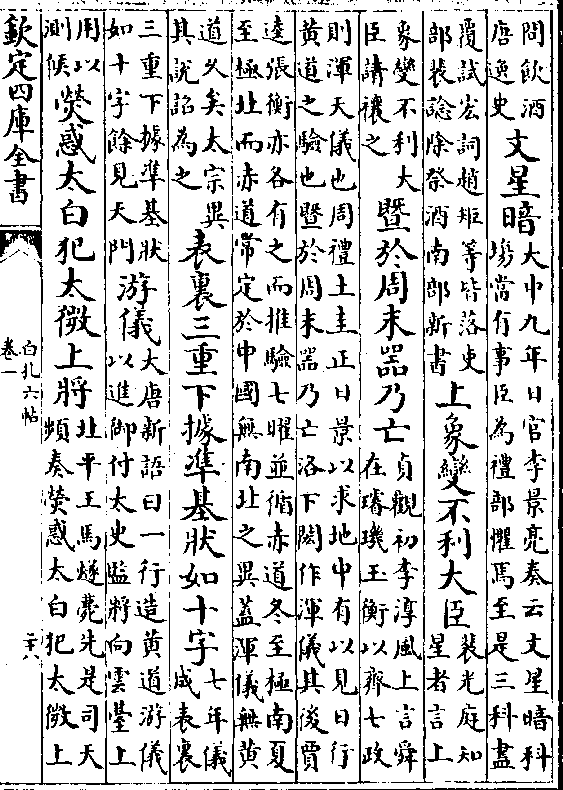 問飲酒
唐逸史
文星暗
大中九年日官李景亮奏云文星暗科
場當有事臣為禮部懼焉至是三科盡
覆試宏詞趙秬等皆落吏
部裴諗除祭酒南部新書
上象變不利大臣
裴光庭知
星者言上
象變不利大
臣請禳之
暨於周末器乃亡
貞觀初李淳風上言舜
在璿璣玉衡以齊七政
則渾天儀也周禮土圭正日景以求地中有以見日行
黃道之驗也暨於周末器乃亡洛下閎作渾儀其後賈
逵張衡亦各有之而推驗七曜並循赤道冬至極南夏
至極北而赤道常定於中國無南北之異蓋渾儀無黃
道久矣太宗異
其說詔為之
表裏三重下據準基狀如十字
七年儀
成表裏
三重下據準基狀
如十字餘見天門
游儀
大唐新語曰一行造黃道游儀
以進御付太史監將向雲臺上
用以
測候
熒惑太白犯太微上將
北平王馬燧薨先是司天
頻奏熒惑太白犯太微上
欽定四庫全書
白孔六帖
卷一
二十八